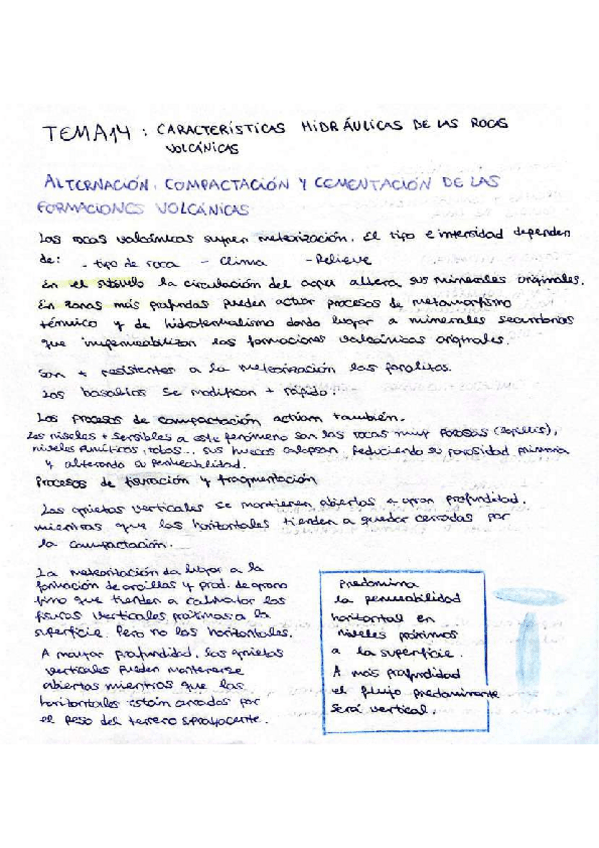 TEMA 14 : CARACTERÍSTICAS HIDRÁULICAS DE LAS ROCAS
VOLCÁNICAS
ALTERNACIÓN, COMPACTACIÓN Y CEMENTACIÓN DE LAS
FORMACIONES VOLCÁNICAS
Las rocas volcánicas sufren meteorización. El tipo e intensidad dependen
de: - tipo de roca - Clima - Relieve
En el subsuelo la circulación del agua altera sus minerales originales.
En zonas más profundas pueden actuar procesos de metamorfismo
térmico y de hidrotermalismo dando lugar a minerales secundarios
que impermeabilizan las formaciones volcánicas originales.
Son + resistentes a la meteorización las fonolitas.
Los basaltos se modifican + rápido.
Los procesos de compactación actúan también.
Los niveles + sensibles a este fenómeno son las rocas muy porosas (lapillis),
niveles pumíticos, tobas... sus huecos colapsan reduciendo su porosidad primaria
y alterando a permeabilidad.
Procesos de fisuración y fragmentación
Las grietas verticales se mantienen abiertas a gran profundidad.
mientras que las horizontales tienden a quedar cerradas por
la compactación.
La meteorización da lugar a la
formación de arcillas y prod. de grano
fino que tienden a colmatar las
fisuras verticales próximas a la
superficie. Pero no las horizontales.
A mayor profundidad, las grietas
verticales pueden mantenerse
abiertas mientras que las
horizontales están cerradas por
el peso del terreno suprayacente.
Predomina
la permeabilidad
horizontal en
niveles próximos
a la superficie.
A más profundidad
el flujo predominante
será vertical.